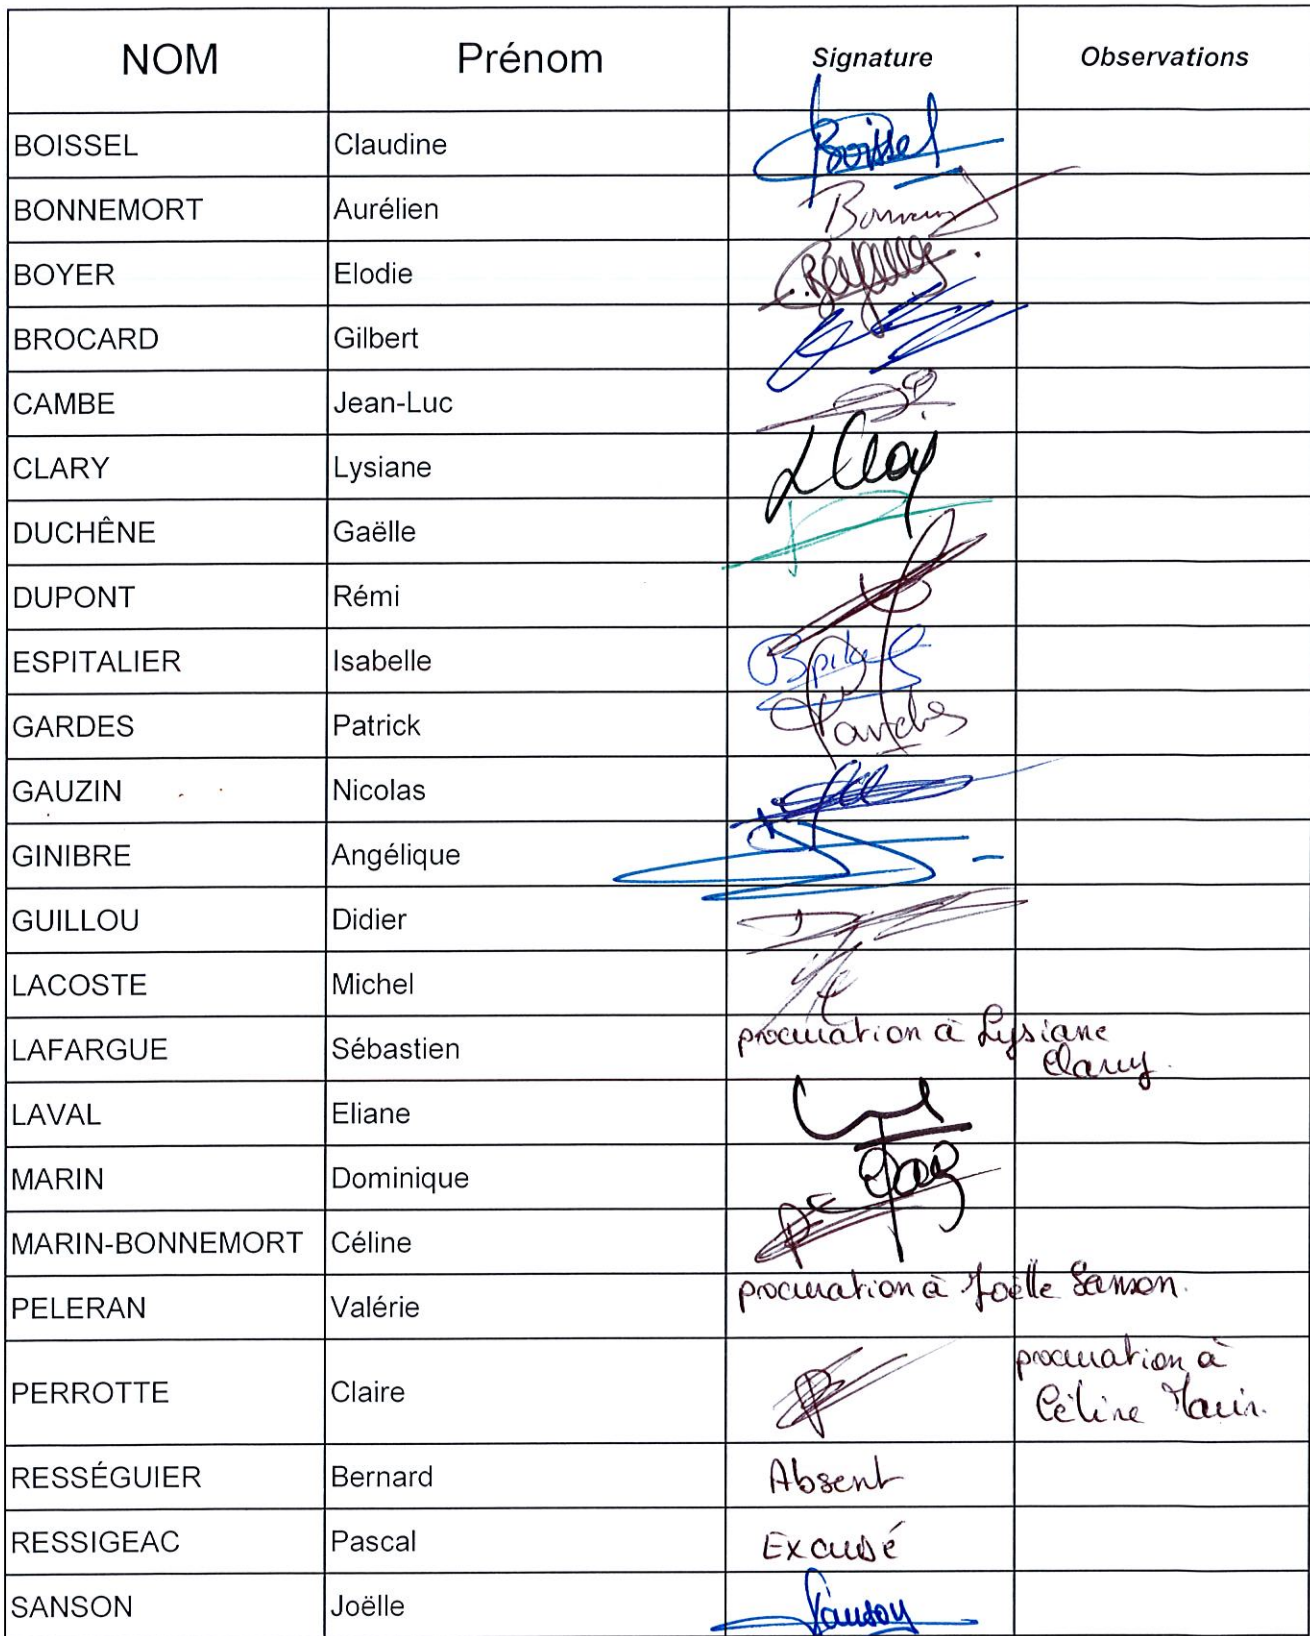 NOM Prénom Signature Observations
BOISSEL Claudine Boissel
BONNEMORT Aurélien
BOYER Elodie
BROCARD Gilbert
CAMBE Jean-Luc
CLARY Lysiane
DUCHÊNE Gaëlle
DUPONT Rémi
ESPITALIER Isabelle
GARDES Patrick
GAUZIN Nicolas
GINIBRE Angélique
GUILLOU Didier
LACOSTE Michel
LAFARGUE Sébastien procuration à Lysiane
Clary.
LAVAL Eliane
MARIN Dominique
MARIN-BONNEMORT Céline
PELERAN Valérie procuration à Joëlle Sanson.
PERROTTE Claire procuration à
Céline Marin.
RESSÉGUIER Bernard Absent
RESSIGEAC Pascal Excusé
SANSON Joëlle Sanson